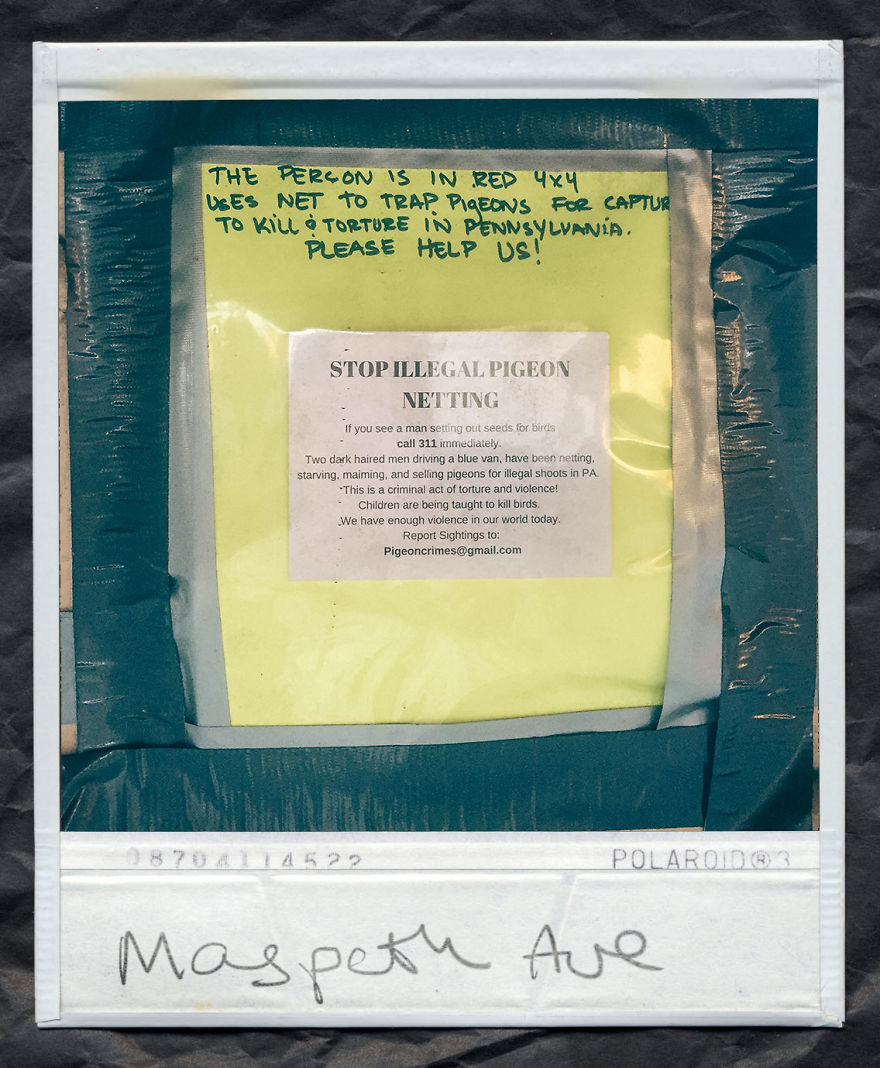 THE PERSON IS IN RED 4x4
USES NET TO TRAP PIGEONS FOR CAPTUR
TO KILL & TORTURE IN PENNSYLVANIA.
PLEASE HELP US!
STOP ILLEGAL PIGEON
NETTING
If you see a man setting out seeds for birds
call 311 immediately.
Two dark haired men driving a blue van, have been netting,
starving, maiming, and selling pigeons for illegal shoots in PA.
This is a criminal act of torture and violence!
Children are being taught to kill birds.
We have enough violence in our world today.
Report Sightings to:
Pigeoncrimes@gmail.com
08704114522 POLAROID®3
Maspeth Ave